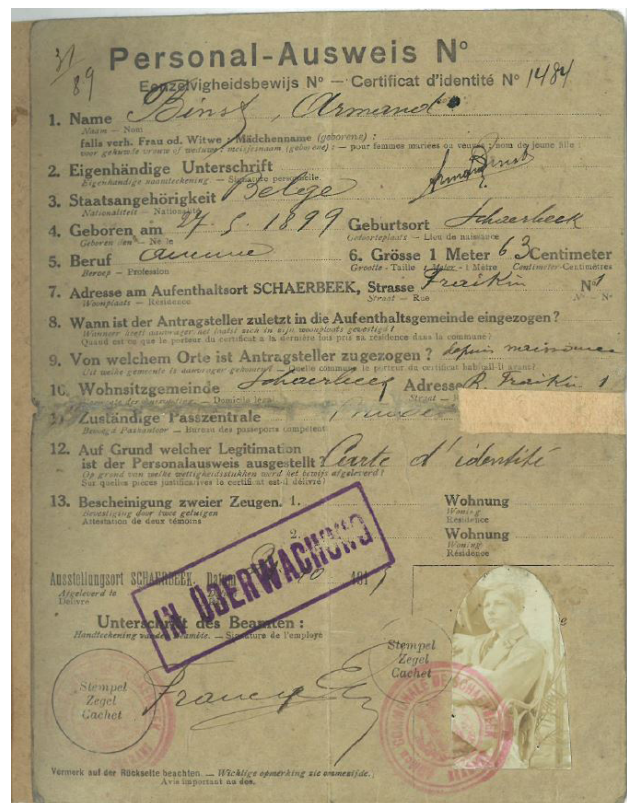 31
89
Personal-Ausweis Nº
Eenzelvigheidsbewijs Nº — Certificat d'identité Nº 1484
1. Name Binst, Armand
Naam — Nom
falls verh. Frau od. Witwe : Mädchenname (geborene) :
voor gehuwde vrouw of weduwe : meisjesnaam (geborene) : — pour femmes mariées ou veuves : nom de jeune fille :
2. Eigenhändige Unterschrift Armand Binst
Eigenhandige naamteekening — Signature personnelle
3. Staatsangehörigkeit Belge
Nationaliteit — Nationalité
4. Geboren am 27.5.1899 Geburtsort Schaerbeek
Geboren den — Né le Geboorteplaats — Lieu de naissance
5. Beruf aucune 6. Grösse 1 Meter 63 Centimeter
Beroep — Profession Grootte - Taille 1 Meter - 1 Mètre Centimeter-Centimètres
7. Adresse am Aufenthaltsort SCHAERBEEK, Strasse Fraikin Nº 1
Woonplaats — Résidence Straat — Rue Nº - Nº
8. Wann ist der Antragsteller zuletzt in die Aufenthaltsgemeinde eingezogen?
Wanneer heeft aanvrager het laatst zich in zijn woonplaats gevestigd ?
Quand est-ce que le porteur du certificat a la dernière fois pris sa résidence dans la commune?
9. Von welchem Orte ist Antragsteller zugezogen ? depuis naissance
Uit welke gemeente is aanvrager gekomen? — Quelle commune le porteur du certificat habitait-il avant?
10. Wohnsitzgemeinde Schaerbeek Adresse R. Fraikin 1
Domicile Straat
11. Zuständige Passzentrale
Bevoegd Paskantoor — Bureau des passeports compétent
12. Auf Grund welcher Legitimation
ist der Personalausweis ausgestellt? Carte d'identité
Op grond van welke wettigheidsstukken werd het bewijs afgeleverd?
Sur quelles pièces justificatives le certificat est-il délivré?
13. Bescheinigung zweier Zeugen. 1. Wohnung
Bevestiging door twee getuigen Woning
Attestation de deux témoins Résidence
2. Wohnung
Woning
Résidence
Ausstellungsort SCHAERBEEK, Datum 191
Afgeleverd te
Délivré
IN ÜBERWACHUNG
Unterschrift des Beamten :
Handteekening van den Beambte. — Signature de l'employé
Stempel
Zegel
Cachet
Stempel
Zegel
Cachet
Vermerk auf der Rückseite beachten. — Wichtige opmerking zie ommezijde.
Avis important au dos.